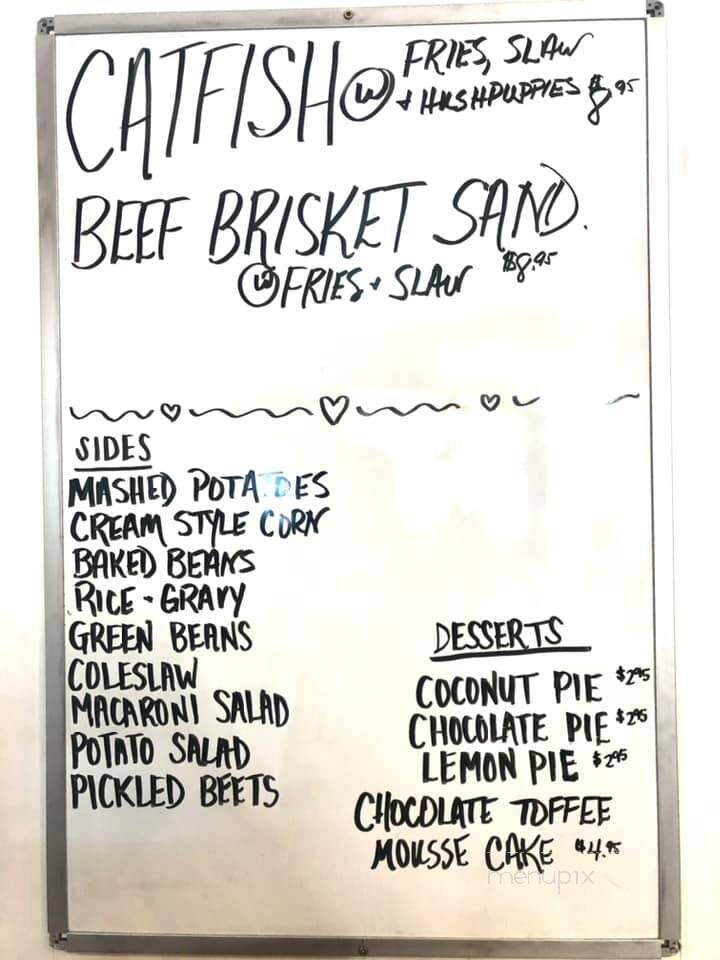 CATFISH W FRIES, SLAW
+ HUSHPUPPIES $8.95
BEEF BRISKET SAND.
W FRIES + SLAW $8.95
SIDES
MASHED POTATOES
CREAM STYLE CORN
BAKED BEANS
RICE - GRAVY
GREEN BEANS
COLESLAW
MACARONI SALAD
POTATO SALAD
PICKLED BEETS
DESSERTS
COCONUT PIE $2.95
CHOCOLATE PIE $2.95
LEMON PIE $2.95
CHOCOLATE TOFFEE
MOUSSE CAKE $4.95
menupix